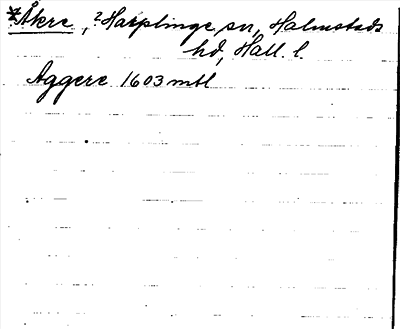 *Åkre, ? Harplinge sn, Halmstads
hd, Hall. l.
Aggere 1603 mtl